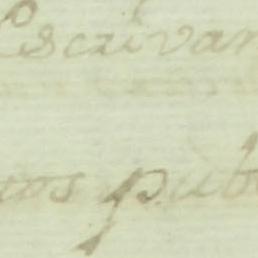 Escrivan
os pub